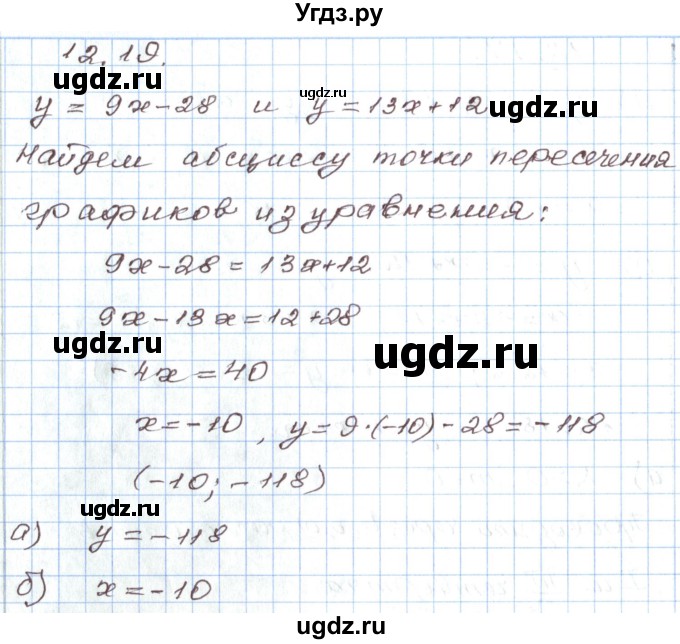 Угдз.ру
12.19.
ugdz.ru
ugdz.ru
ugdz.ru
y = 9x-28 и y = 13x+12
Найдем абсциссу точки пересечения
графиков из уравнения:
9x-28 = 13x+12
9x-13x=12+28
ugdz.ru
ugdz.ru
-4x = 40
x=-10, y=9·(-10)-28=-118
(-10; -118)
ugdz.ru
а) y = -118
б) x = -10
ugdz.ru
ugdz.ru